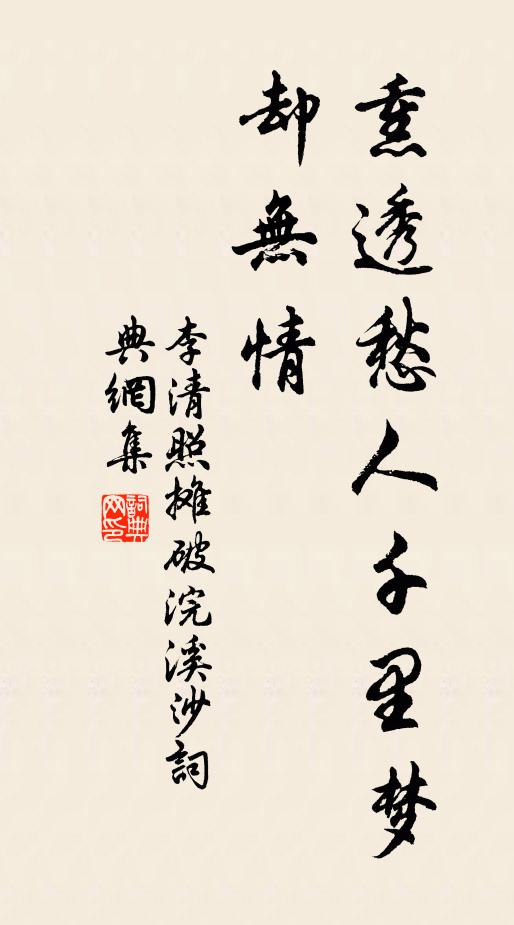 熏透愁人千里梦
却無情
李清照摊破浣溪沙詞
典網集
詞典網印